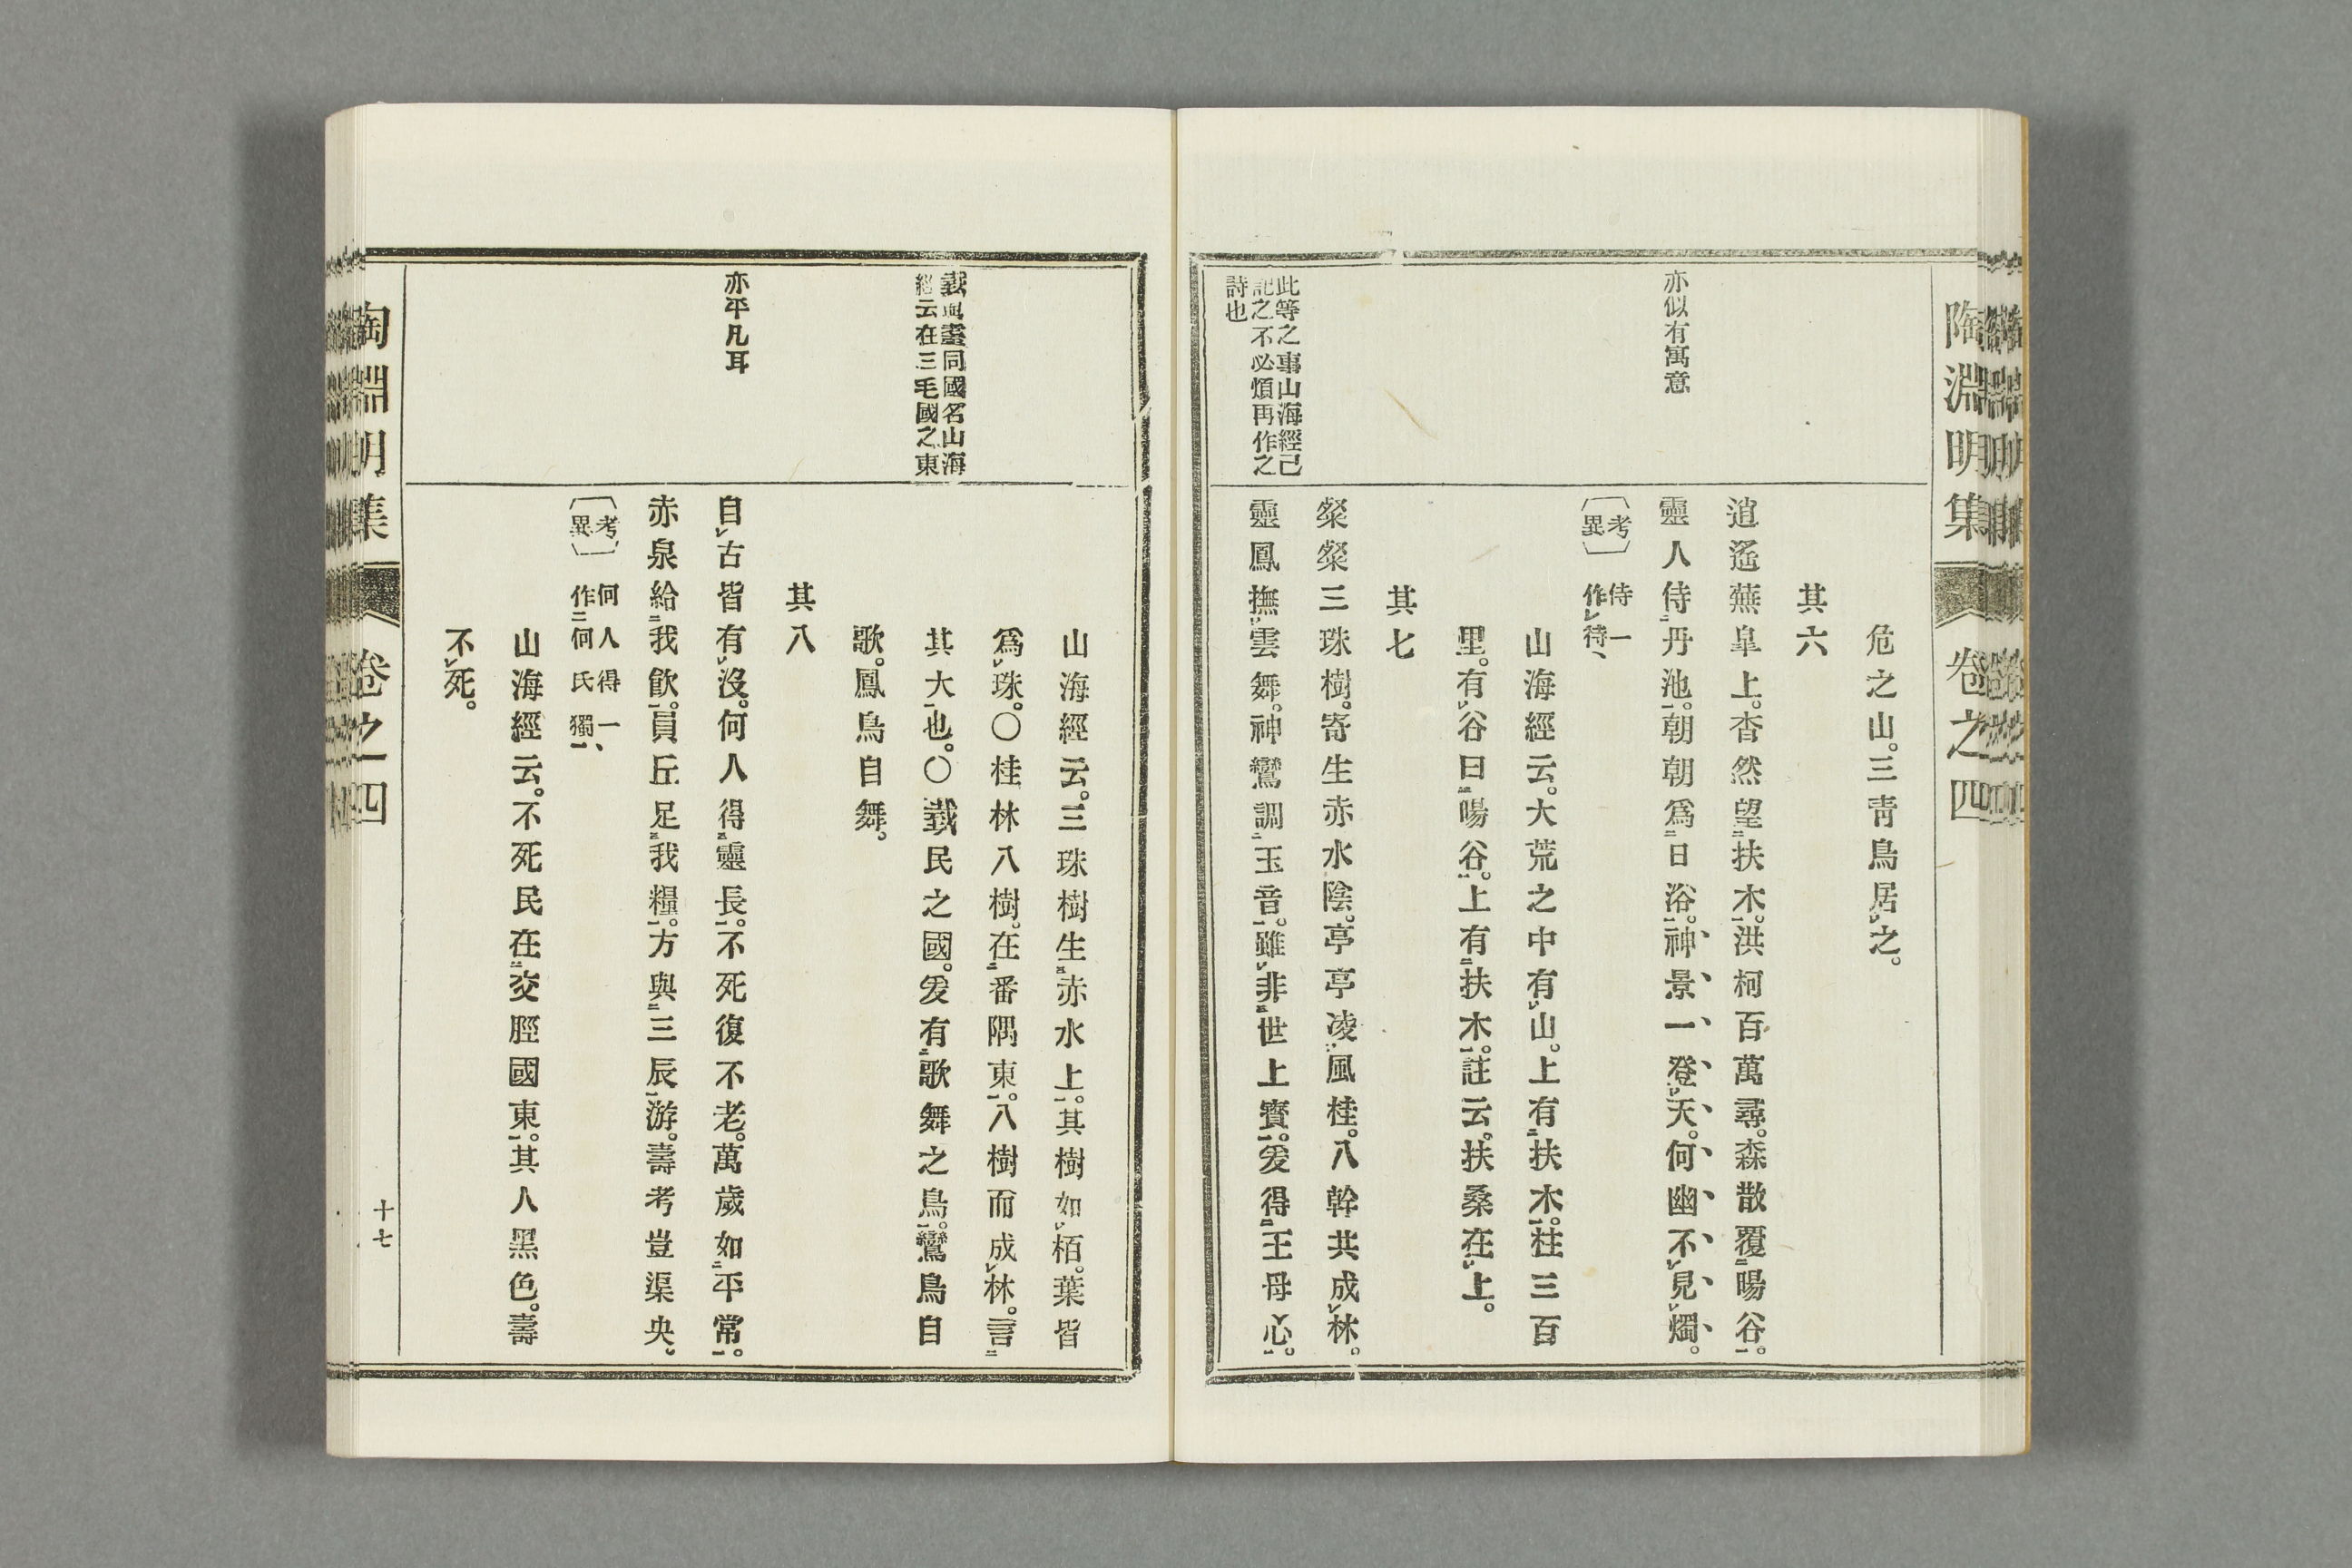 陶淵明集
卷之四
亦似有寓意
此等之事山海經已
記之不必煩再作之
詩也
危之山。三靑鳥居之。
其六
逍遙蕪皐上。杳然望扶木。洪柯百萬尋。森散覆暘谷。
靈人侍丹池。朝朝爲日浴。神景一登天。何幽不見燭。
〔考異〕
侍一
作待、
山海經云。大荒之中有山。上有扶木。柱三百
里。有谷曰暘谷。上有扶木。註云。扶桑在上。
其七
粲粲三珠樹。寄生赤水陰。亭亭凌風桂。八幹共成林。
靈鳳撫雲舞。神鸞調玉音。雖非世上寶。爰得王母心。
國名山海
經云在三毛國之東
亦平凡耳
山海經云。三珠樹生赤水上。其樹如栢。葉皆
爲珠。〇桂林八樹。在番隅東。八樹而成林。言
其大也。〇臷民之國。爰有歌舞之鳥。鸞鳥自
歌。鳳鳥自舞。
其八
自古皆有沒。何人得靈長。不死復不老。萬歲如平常。
赤泉給我飮。員丘足我糧。方與三辰游。壽考豈渠央。
〔考異〕
何人得一、
作何氏獨、
山海經云。不死民在交脛國東。其人黑色。壽
不死。
陶淵明集
卷之四
十七